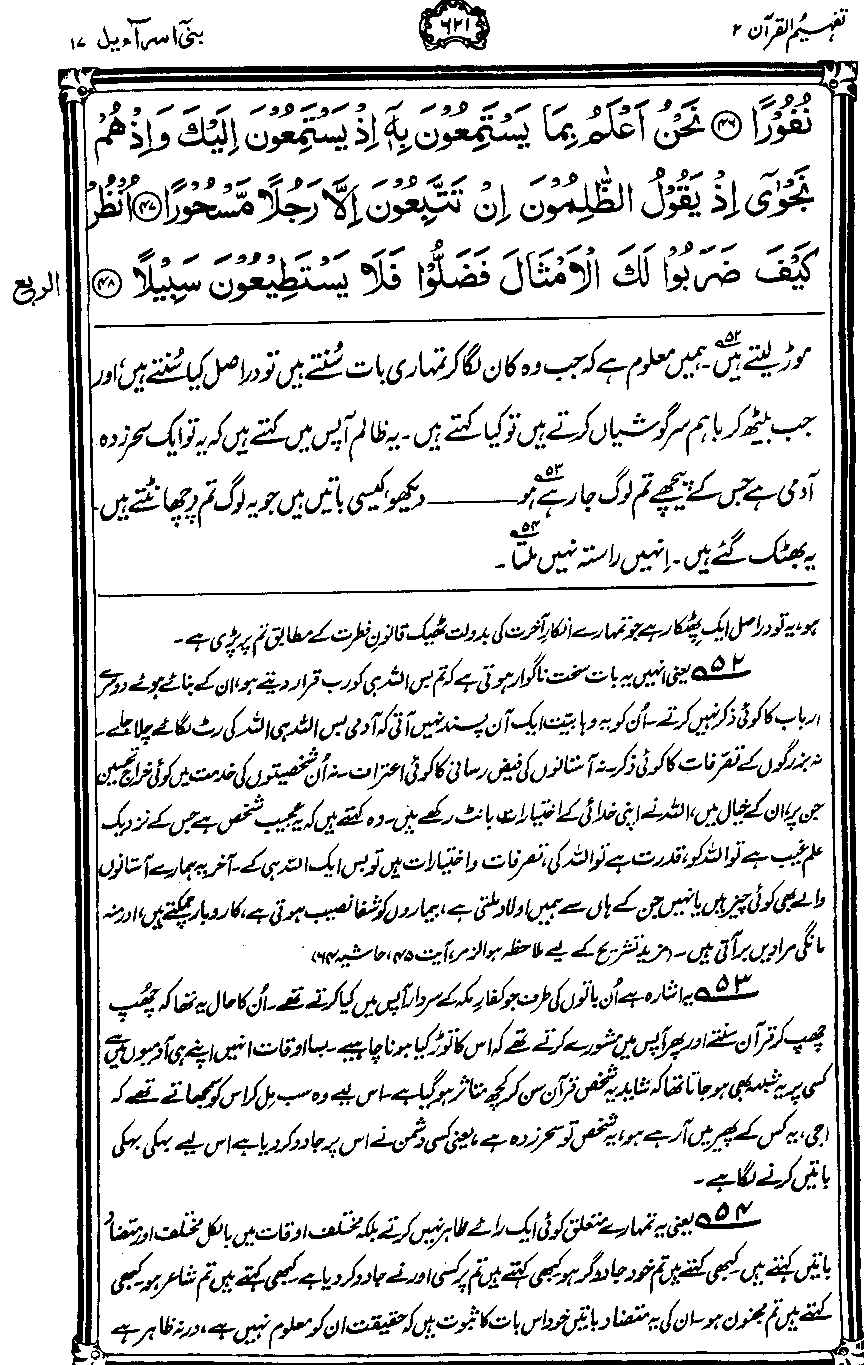 تفہیم القرآن ۲
۶۲۱
بنی اسرآءیل ۱۷
نُفُوْرًا ﴿۴۶﴾ نَحْنُ اَعْلَمُ بِمَا يَسْتَمِعُوْنَ بِهٖٓ اِذْ يَسْتَمِعُوْنَ اِلَيْكَ وَاِذْ هُمْ
نَجْوٰٓى اِذْ يَقُوْلُ الظّٰلِمُوْنَ اِنْ تَتَّبِعُوْنَ اِلَّا رَجُلًا مَّسْحُوْرًا ﴿۴۷﴾ اُنْظُرْ
كَيْفَ ضَرَبُوْا لَكَ الْاَمْثَالَ فَضَلُّوْا فَلَا يَسْتَطِيْعُوْنَ سَبِيْلًا ﴿۴۸﴾
الربع
موڑ لیتے ہیں۵۲۔ ہمیں معلوم ہے کہ جب وہ کان لگا کر تمہاری بات سُنتے ہیں تو دراصل کیا سُنتے ہیں، اور
جب بیٹھ کر باہم سرگوشیاں کرتے ہیں تو کیا کہتے ہیں۔ یہ ظالم آپس میں کہتے ہیں کہ یہ تو ایک سحر زدہ
آدمی ہے جس کے پیچھے تم لوگ جا رہے ہو۵۳ ــــــــ دیکھو، کیسی باتیں ہیں جو یہ لوگ تم پر چھانٹتے ہیں۔
یہ بھٹک گئے ہیں۔ اِنہیں راستہ نہیں ملتا۵۴۔
ہو، یہ تو دراصل ایک پھٹکار ہے جو تمہارے انکارِ آخرت کی بدولت ٹھیک قانونِ فطرت کے مطابق تم پر پڑی ہے۔
۵۲ یعنی انہیں یہ بات سخت ناگوار ہوتی ہے کہ تم بس اللہ ہی کو رب قرار دیتے ہو، ان کے بنائے ہوئے دوسرے
ارباب کا کوئی ذکر نہیں کرتے۔ اُن کو یہ وہابیّت ایک آن پسند نہیں آتی کہ آدمی بس اللہ ہی اللہ کی رٹ لگائے چلا جائے۔
نہ بزرگوں کے تصرّفات کا کوئی ذکر۔ نہ آستانوں کی فیض رسانی کا کوئی اعتراف۔ نہ اُن شخصیتوں کی خدمت میں کوئی خراجِ تحسین
جن پر، ان کے خیال میں، اللہ نے اپنی خدائی کے اختیارات بانٹ رکھے ہیں۔ وہ کہتے ہیں کہ یہ عجیب شخص ہے جس کے نزدیک
علمِ غیب ہے تو اللہ کو، قدرت ہے تو اللہ کی، تصرفات و اختیارات ہیں تو بس ایک اللہ ہی کے۔ آخر یہ ہمارے آستانوں
والے بھی کوئی چیز ہیں یا نہیں جن کے ہاں سے ہمیں اولاد ملتی ہے، بیماروں کو شفا نصیب ہوتی ہے، کاروبار چمکتے ہیں، اور منہ
مانگی مرادیں بر آتی ہیں۔ (مزید تشریح کے لیے ملاحظہ ہو الزمر، آیت ۴۵، حاشیہ ۶۴)
۵۳ یہ اشارہ ہے اُن باتوں کی طرف جو کفارِ مکہ کے سردار آپس میں کیا کرتے تھے۔ اُن کا حال یہ تھا کہ چھپ
چھپ کر قرآن سنتے اور پھر آپس میں مشورے کرتے تھے کہ اس کا توڑ کیا ہونا چاہیے۔ بسا اوقات انہیں اپنے ہی آدمیوں میں سے
کسی پر یہ شبہ بھی ہو جاتا تھا کہ شاید یہ شخص قرآن سن کر کچھ متاثر ہو گیا ہے۔ اس لیے وہ سب مل کر اس کو سمجھاتے تھے کہ
اجی، یہ کس کے پھیر میں آ رہے ہو، یہ شخص تو سحر زدہ ہے، یعنی کسی دشمن نے اس پر جادو کر دیا ہے اس لیے بہکی بہکی
باتیں کرنے لگا ہے۔
۵۴ یعنی یہ تمہارے متعلق کوئی ایک رائے ظاہر نہیں کرتے بلکہ مختلف اوقات میں بالکل مختلف اور متضاد
باتیں کہتے ہیں۔ کبھی کہتے ہیں تم خود جادوگر ہو۔ کبھی کہتے ہیں تم پر کسی اور نے جادو کر دیا ہے۔ کبھی کہتے ہیں تم شاعر ہو۔ کبھی
کہتے ہیں تم مجنون ہو۔ ان کی یہ متضاد باتیں خود اس بات کا ثبوت ہیں کہ حقیقت ان کو معلوم نہیں ہے، ورنہ ظاہر ہے